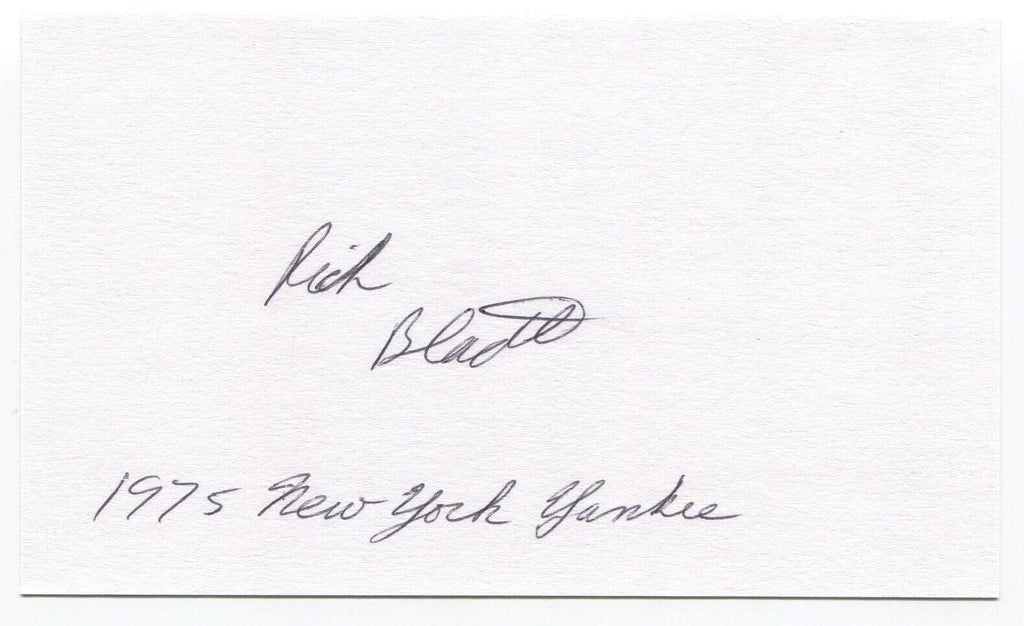 Rick
Bladt
1975 New York Yankee